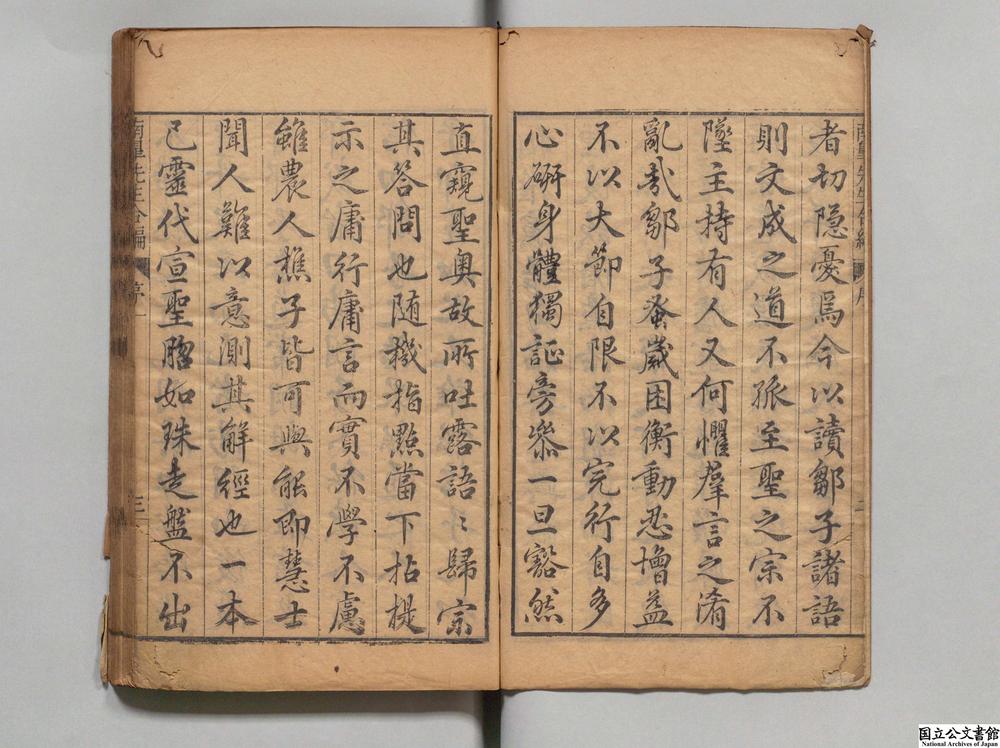 者切隱憂焉今以讀鄒子諸語
則文成之道不孤至聖之宗不
墜主持有人又何懼羣言之淆
亂哉鄒子蚤歲困衡動忍增益
不以大節自限不以完行自多
心研身體獨証旁叅一旦豁然
直窺聖奥故所吐露語〻歸宗
其答問也随機指點當下拈提
示之庸行庸言而實不學不慮
雖農人樵子皆可與能即慧士
聞人難以意測其解經也一本
己靈代宣聖
如珠走盤不出
南皐先生合編
序
三
国立公文書館
National Archives of Japan